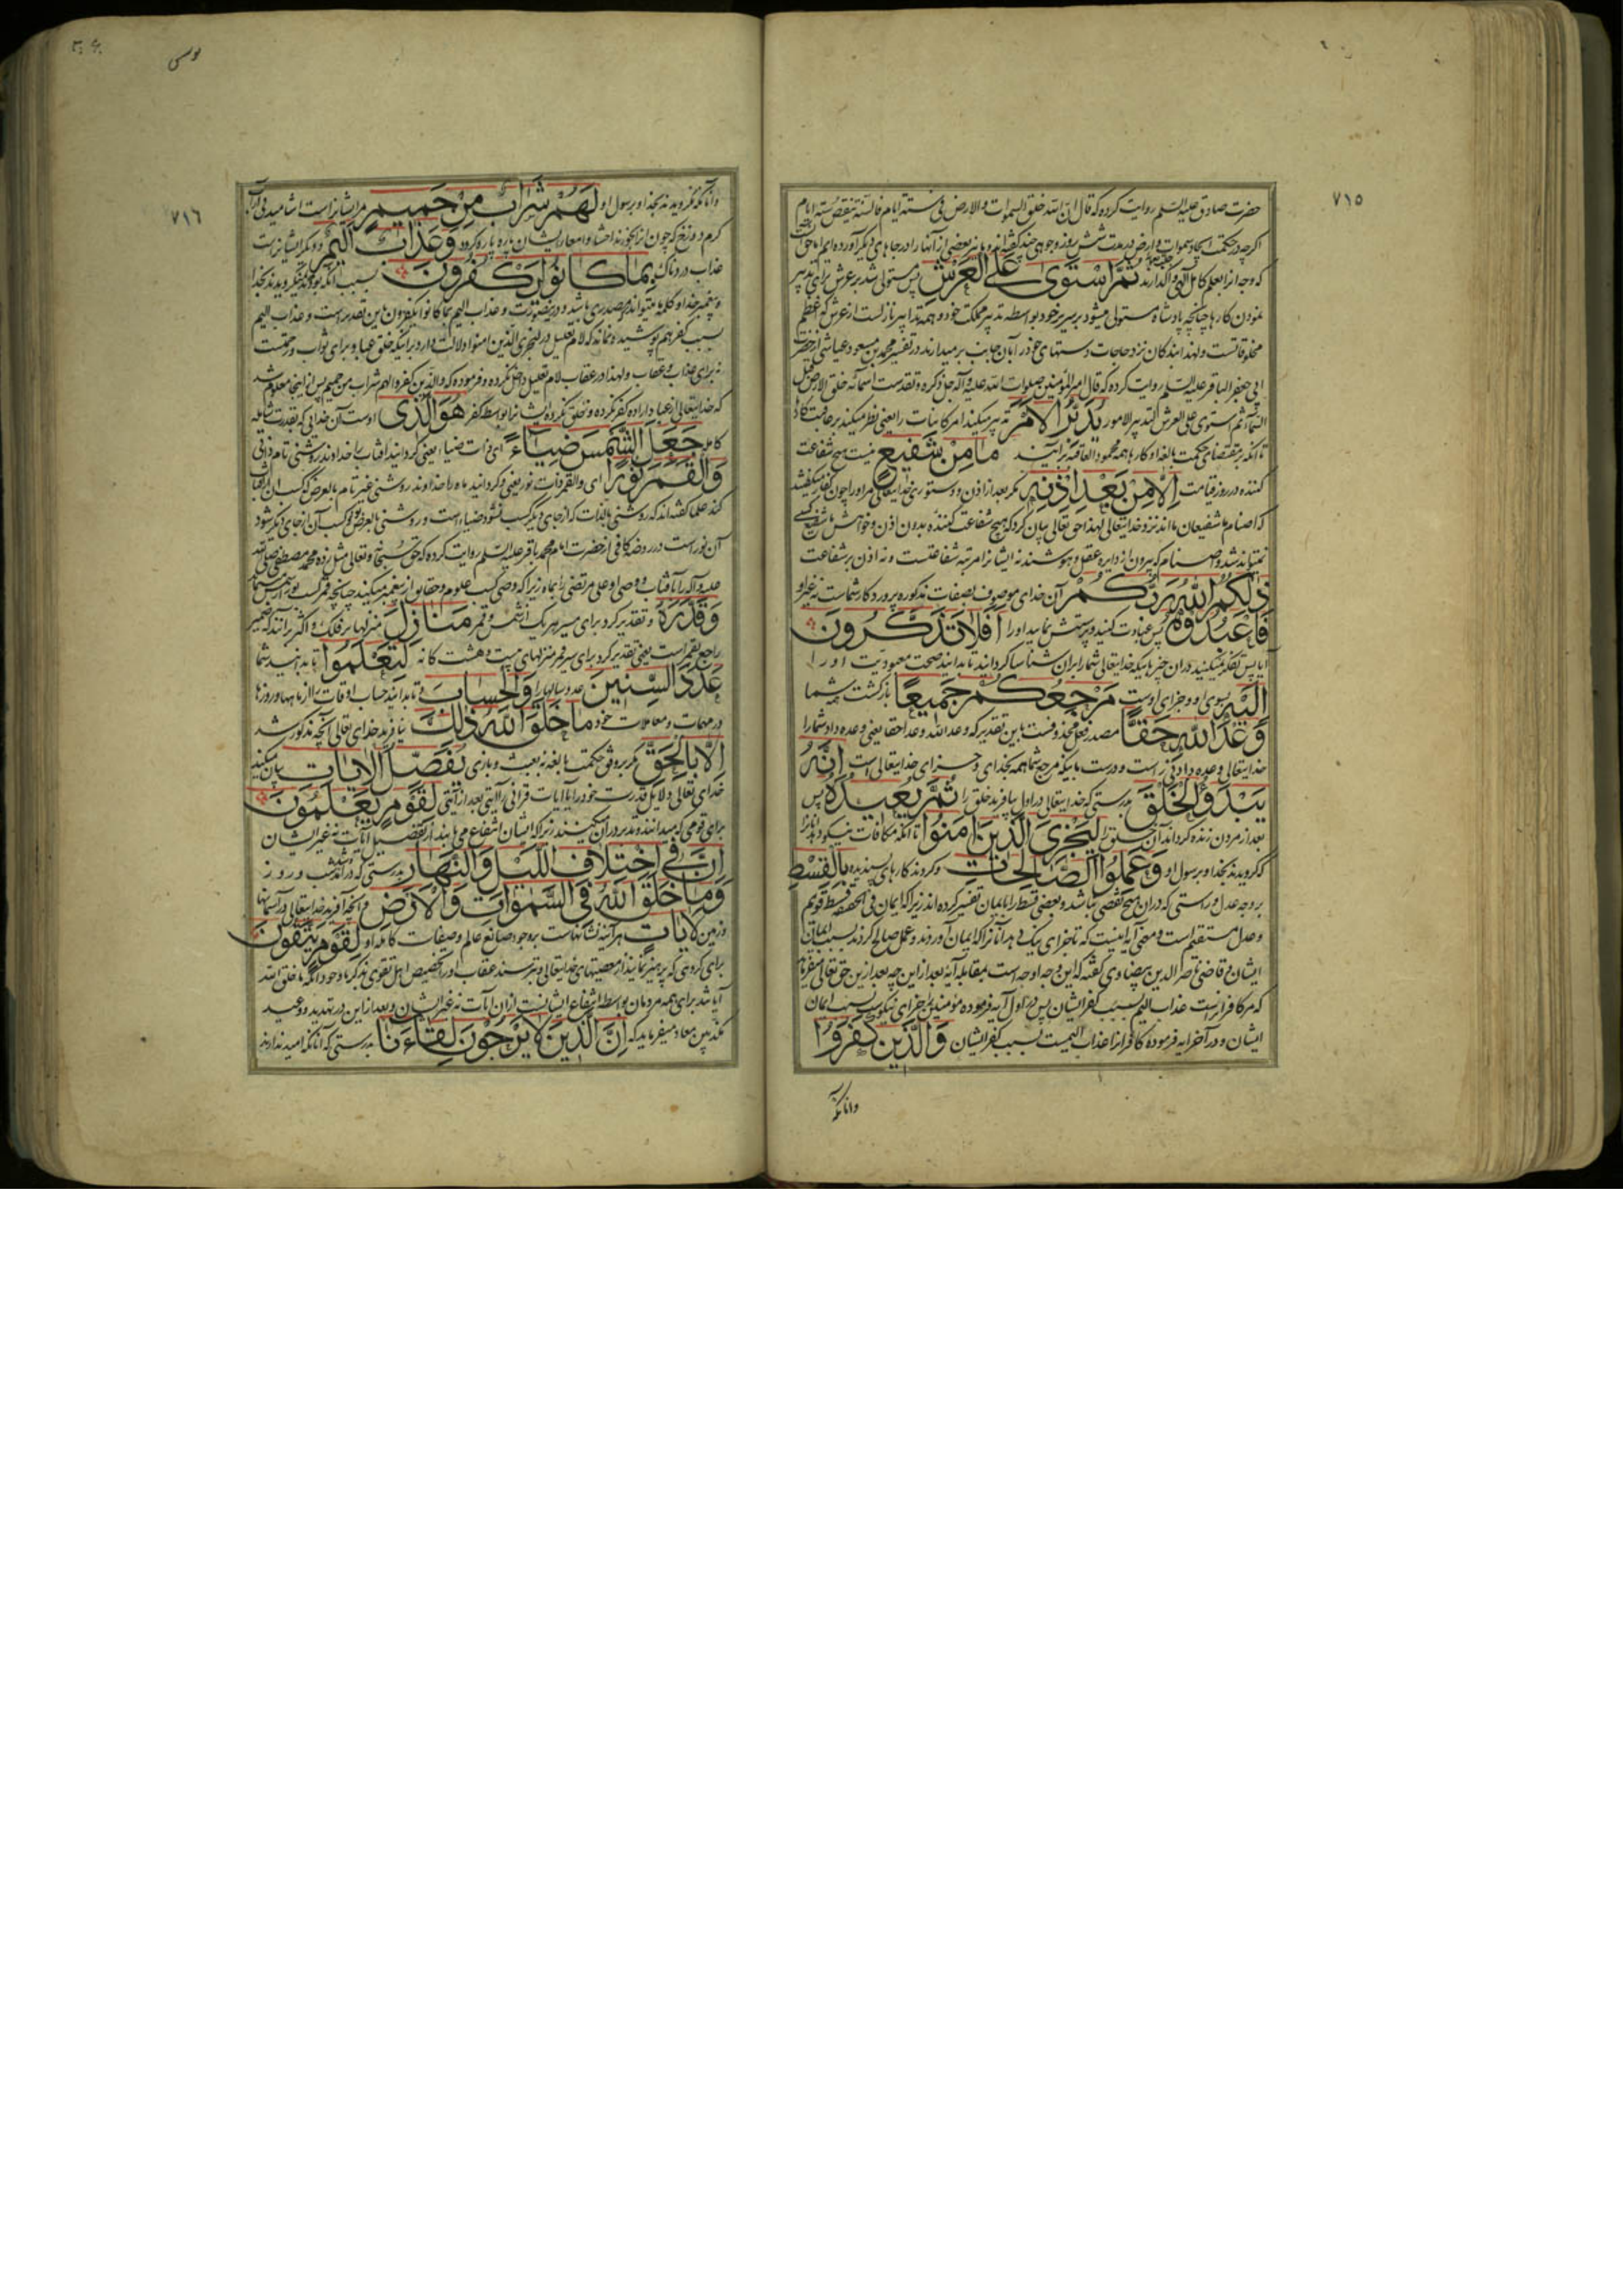 ٧١٥
حضرت صادق علیه السلم روایت کرده که قال ان الله خلق السموات والارض فی ستة ایام فالسنة ینقص ستة ایام
اکرچه در حکمت ایجاد سموات وارض در مدت شش روز وجوهی چند کفته‌اند و ما نیز بعضی از آنها را در جاهای دیکر آورده‌ایم اما حق آنست
که وجه انرا بعلم کامل الهی واکذارند ثُمَّ اسْتَوىٰ عَلَى العَرْشِ پس مستولی شد بر عرش برای تدبیر
نمودن کارها چنانچه پادشاه مستولی میشود بر سریر خود بواسطه تدبیر مملکت خود و همه تدابیر نازلست از عرش که اعظم
مخلوقاتست ولهذا بندکان نزد حاجات دستهای خود را بآن جانب بر میدارند در تفسیر محمد بن مسعود عیاشی از حضرت
ابی جعفر الباقر علیه السلم روایت کرده که قال امیر المؤمنین صلوات الله علیه وآله جل ذکره وتقدست اسمائه خلق الارض قبل
السماء ثم استوی علی العرش لتدبیر الامور يُدَبِّرُ الْاَمْرَ تدبیر میکند امر کاینات را یعنی نظر میکند بر عاقبت کارها
تا انکه بر مقتضای حکمت بالغه او کارها همه محمود العاقبة برآیند مَا مِنْ شَفِيعٍ نیست هیچ شفاعت
کننده در روز قیامت اِلَّا مِنْ بَعْدِ اِذْنِهٖ مکر بعد از اذن و دستوری خدایتعالی مر او را چون کفار میکفتند
که اصنام ما شفیعان ما اند نزد خدایتعالی لهذا حق تعالی بیان کرد که هیچ شفاعت کننده بدون اذن و خواهش ما شفیع کسی
نمیتواند شد و اصنام که بیرون از دایره عقل و هوشند نه ایشانرا مرتبه شفاعتست و نه اذن بر شفاعت
ذٰلِكُمُ اللّٰهُ رَبُّكُمْ آن خدای موصوف بصفات مذکوره پروردکار شماست نه غیر او
فَاعْبُدُوْهُ پس عبادت کنید و پرستش نمایید او را اَفَلَا تَذَكَّرُونَ
آیا پس تفکر نمیکنید در ان چیز ها یکه خدایتعالی شما را بران شناسا کردانید تا بدانید صحت معبودیت او را
اِلَيْهِ بسوی او و جزای اوست مَرْجِعُكُمْ جَمِيعًا بازکشت همه شما
وَعْدَ اللّٰهِ حَقًّا مصدر فعل محذوفست باین تقدیر که وعد الله وعدا حقا یعنی وعده داد شما را
خدایتعالی وعده دادنی راست و درست باینکه مرجع شما همه بخدای و جزای خدایتعالی است اِنَّهُ
يَبْدَؤُ الْخَلْقَ بدرستی که خدایتعالی در اول بیافریند خلق را ثُمَّ يُعِيدُهُ پس
بعد از مردن زنده کرداند آن خلق را لِيَجْزِيَ الَّذِينَ اٰمَنُوا تا انکه مکافات نیکو دهد آنانرا
که کرویدند بخدا و برسول او وَعَمِلُوا الصَّالِحَاتِ و کردند کارهای پسندیده بِالْقِسْطِ
بر وجه عدل و راستی که دران هیچ نقصی نباشد و بعضی قسط را بایمان تفسیر کرده اند زیرا که ایمان فی الحقیقه قسط قویم
و عدل مستقیم است و معنی آیه اینست که تا جزای نیکی دهد آنانرا که ایمان آوردند و عمل صالح کردند بسبب ایمان
ایشان و قاضی ناصر الدین بیضاوی کفته که این وجه اوجه است بمقابله آیه بعد از این چه بعد ازین حق تعالی میفرماید
که مر کافرانراست عذاب الیم بسبب کفر ایشان پس در اول آیه فرموده مؤمنین را جزای نیکوست بسبب ایمان
ایشان و در آخر آیه فرموده کافرانرا عذاب الیمست بسبب کفر ایشان وَالَّذِينَ كَفَرُوا
وانانکه
یونس
٧١٦
وانانکه نکرویدند بخدا و برسول او لَهُمْ شَرَابٌ مِنْ حَمِيمٍ مر ایشانراست اشامیدنی از آب
کرم دوزخ که چون ازان بخورند احشا و امعاء ایشان پاره پاره کردد وَعَذَابٌ اَلِيمٌ و دیکر ایشانراست
عذاب دردناک بِمَا كَانُوا يَكْفُرُونَ بسبب انکه بودند که نکرویدند بخدا
و پیغمبر خدا و کلمه ما میتواند که مصدری باشد و درینصورت وعذاب الیم بما کانوا یکفرون باین تقدیر است وعذاب الیم
بسبب کفرهم پوشیده نماند که لام تعلیل در لیجزی الذین امنوا دلالت دارد بر اینکه خلق عباد برای ثواب و رحمتست
نه برای عذاب و عقاب ولهذا در عقاب لام تعلیل داخل نکرده و فرموده که والذین کفروا لهم شراب من حمیم پس از اینجا معلوم شد
که خدایتعالی از عباد اراده کفر نکرده و خلق نکرده ایشانرا بواسطه کفر هُوَ الَّذِى اوست آن خدایی که بقدرت شامله
کامله جَعَلَ الشَّمْسَ ضِيَاءً ای ذات ضیاء یعنی کردانید افتاب را خداوند روشنی تام ذاتی
وَالْقَمَرَ نُورًا ای والقمر ذات نور یعنی و کردانید ماه را خداوند روشنی غیر تام بالعرض که کسب آن از افتاب
کند علما کفته‌اند که روشنی بالذات که از جای دیکر کسب نشود ضیاء است و روشنی بالعرض که کسب آن از جای دیکر شود
آن نور است در روضه کافی از حضرت امام محمد باقر علیه السلم روایت کرده که حق سبحانه و تعالی مثل زده محمد مصطفی صلی الله
علیه وآله را بآفتاب و وصی او علی مرتضی را بماه زیرا که وصی کسب علوم و حقایق از پیغمبر میکند چنانچه قمر کسب نور از شمس مینماید
وَقَدَّرَهُ و تقدیر کرد برای سیر هر یک از شمس و قمر مَنَازِلَ منزلها بر فلک و اکثر برانند که ضمیر
راجع بقمر است یعنی تقدیر کرد برای سیر قمر منزلهای بیست و هشت کانه لِتَعْلَمُوا تا بدانید شما
عَدَدَ السِّنِينَ عدد سالها را وَالْحِسَابَ و تا بدانید حساب اوقات را از ماهها و روزها
در مهمات و معاملات خود مَا خَلَقَ اللّٰهُ ذٰلِكَ نیافرید خدای تعالی آنچه مذکور شد
اِلَّا بِالْحَقِّ مکر بر وفق حکمت بالغه نه بعبث و بازی يُفَصِّلُ الْاٰيَاتِ بیان میکند
خدای تعالی دلایل قدرت خود را یا ایات قرانی را آیتی بعد از آیتی لِقَوْمٍ يَعْلَمُونَ
برای قومی که میدانند و تدبر دران میکنند زیرا که ایشان انتفاع می یابند از تفصیل ایات نه غیر ایشان
اِنَّ فِى اخْتِلَافِ اللَّيْلِ وَالنَّهَارِ بدرستی که در آمد شد شب و روز
وَمَا خَلَقَ اللّٰهُ فِى السَّمٰوَاتِ وَالْاَرْضِ و آنچه آفرید خدایتعالی در آسمانها
و زمین لَاٰيَاتٍ هر آینه نشانهاست بر وجود صانع عالم و صفات کامله او لِقَوْمٍ يَتَّقُونَ
برای کروهی که پرهیز نمایند از معصیتهای خدایتعالی و بترسند عقاب او را تخصیص اهل تقوی بذکر با وجود انکه ما خلق الله
آیه باشد برای همه مردمان بواسطه انتفاع ایشانست ازان ایات نه غیر ایشان و بعد از این در تهدید و وعید
مکذبین معاد میفرماید که اِنَّ الَّذِينَ لَا يَرْجُونَ لِقَاءَنَا بدرستی که آنانکه امید ندارند